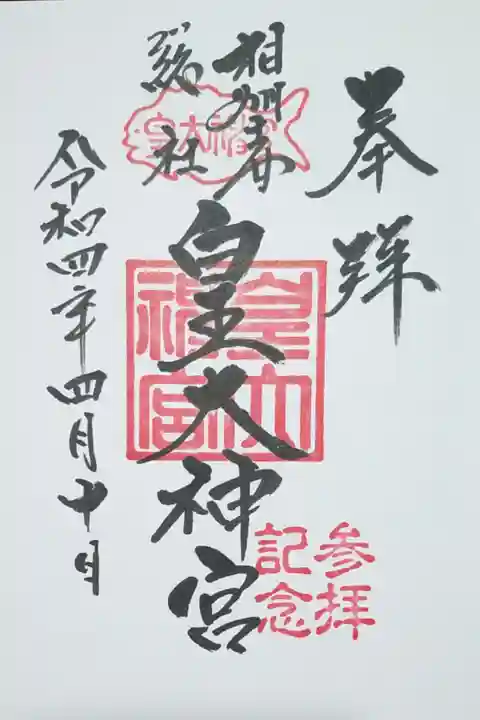 奉拜
相州𠦄
総社
皇大神宮
皇大神宮
参拝
記念
令和四年四月十日